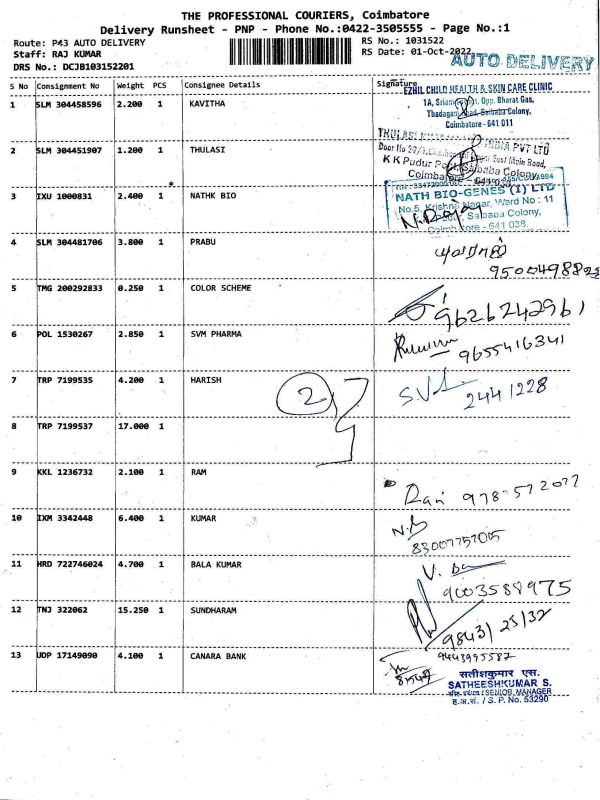 THE PROFESSIONAL COURIERS, Coimbatore
Delivery Runsheet - PNP - Phone No.:0422-3505555 - Page No.:1
Route: P43 AUTO DELIVERY
RS No.: 1031522
Staff: RAJ KUMAR
RS Date: 01-Oct-2022
AUTO DELIVERY
DRS No.: DCJB103152201
S No Consignment No Weight PCS Consignee Details Signature
1 SLM 304458596 2.200 1 KAVITHA
EZHIL CHILD HEALTH & SKIN CARE CLINIC
Opp. Bharat Gas,
Saibaba Colony,
Coimbatore - 641 011
2 SLM 304451907 1.200 1 THULASI
THULASI INDIA PVT LTD
East Main Road,
K K Pudur Saibaba Colony,
3 IXU 1000831 2.400 1 NATHK BIO
NATH BIO-GENES (I) LTD
No.5, Krishna Nagar, Ward No : 11
Saibaba Colony,
Coimbatore - 641 038.
4 SLM 304481706 3.800 1 PRABU
5 TMG 200292833 0.250 1 COLOR SCHEME
9626242961
6 POL 1530267 2.850 1 SVM PHARMA
9655416341
7 TRP 7199535 4.200 1 HARISH
2441228
2
8 TRP 7199537 17.000 1
9 KKL 1236732 2.100 1 RAM
10 IXM 3342448 6.400 1 KUMAR
11 HRD 722746024 4.700 1 BALA KUMAR
9003588975
12 TNJ 322062 15.250 1 SUNDHARAM
13 UDP 17149090 4.100 1 CANARA BANK
सतीशकुमार एस.
SATHEESHKUMAR S.
SENIOR MANAGER
ह.अ.सं. / S.P. No. 53290